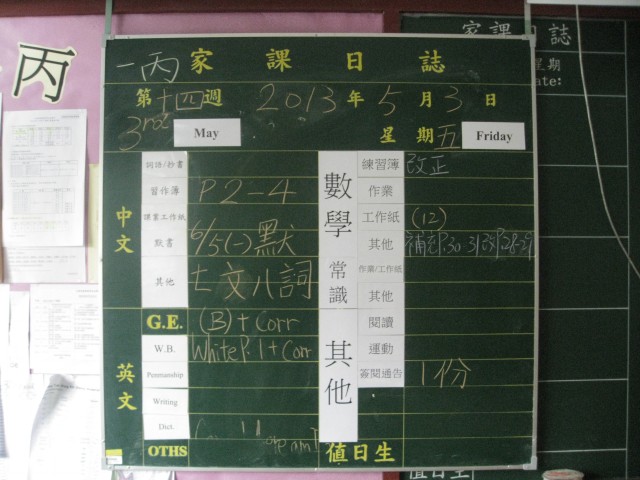 丙
一丙 家課日誌
第十四週 2013年5月3日
3rd May 星期五 Friday
中文
詞語/抄書
習作簿 P2-4
課業工作紙
默書 6/5(一)默
其他 七文八詞
英文
G.E. (B)+Corr
W.B. White P.1+Corr
Penmanship
Writing
Dict.
OTHS
數學
練習簿 改正
作業
工作紙 (12)
其他 補充P30 31
常識
作業/工作紙
其他
其他
閱讀
運動
簽閱通告 1份
值日生
家課日誌
星期
ate:
值日生